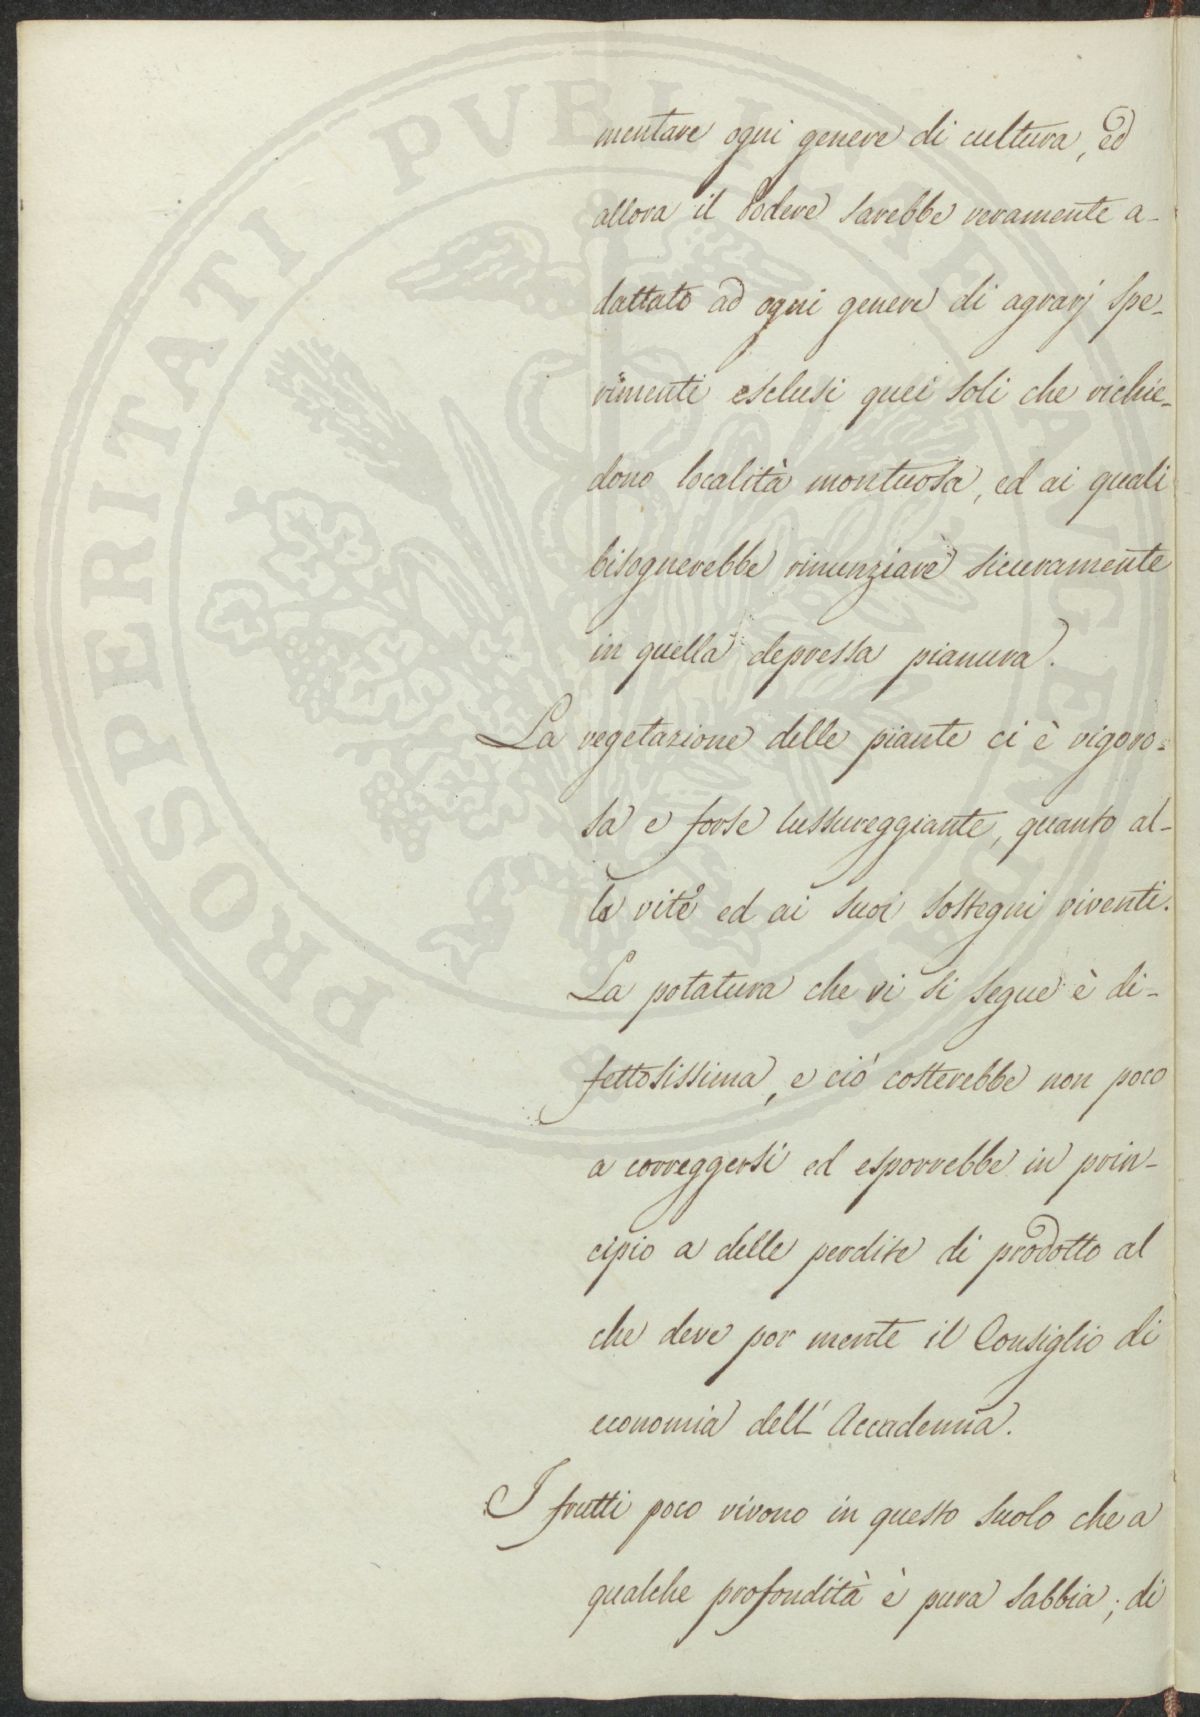 mentare ogni genere di cultura, ed
allora il Podere sarebbe veramente a-
dattato ad ogni genere di agrarj spe-
rimenti esclusi quei soli che richie-
dono località montuosa, ed ai quali
bisognerebbe rinunziare sicuramente
in quella depressa pianura.
La vegetazione delle piante ci è vigoro=
sa e forse lussureggiante, quanto al-
la vite ed ai suoi sostegni viventi.
La potatura che vi si segue è di-
fettosissima, e ciò costerebbe non poco
a correggersi ed esporrebbe in prin-
cipio a delle perdite di prodotto al
che deve por mente il Consiglio di
economia dell' Accademia.
I frutti poco vivono in questo suolo che a
qualche profondità è pura sabbia; di
PROSPERITATI PUBLICAE AUGENDAE